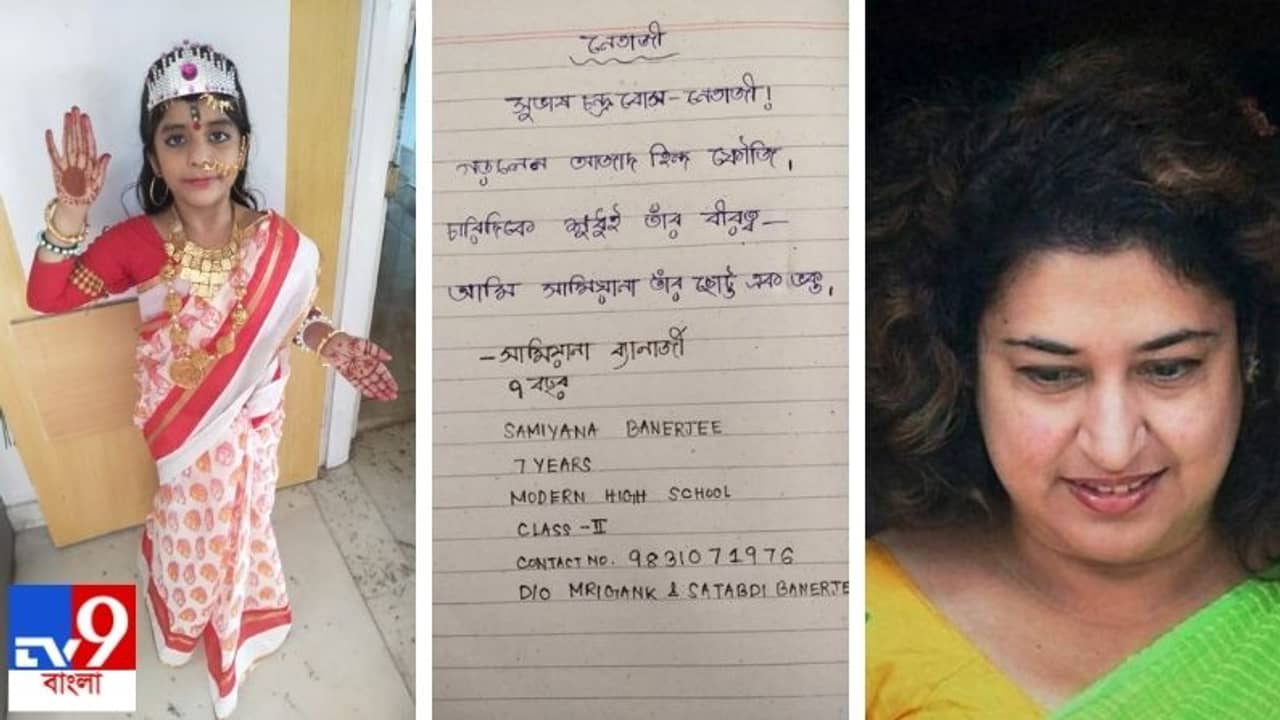 নেতাজী
সুভাষ চন্দ্র বোস - নেতাজী!
লড়লেন আজাদ হিন্দ ফৌজি।
চারিদিকে শুধুই তাঁর বীরত্ব -
আমি সামিয়ানা তাঁর ছোট্ট এক ভক্ত।
- সামিয়ানা ব্যানার্জী
৭ বছর
SAMIYANA BANERJEE
7 YEARS
MODERN HIGH SCHOOL
CLASS - II
CONTACT NO. 9831071976
D/O MRIGANK & SATABDI BANERJE
TV9
বাংলা